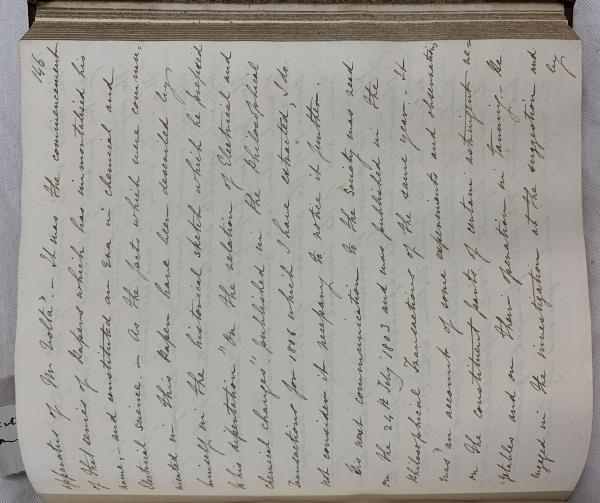 146
apparatus of Mr Volta". – It was the commencement
of that series of Papers which has immortalized his
name; – and constituted an Era in chemical and
Electrical science. – As the facts which were commu-
nicated in this Paper have been described by
himself in the historical sketch which he prefixed
to his dissertation "On the relation of Electrical and
Chemical changes" published in the Philosophical
Transactions for 1826 which I have extracted, I do
not consider it necessary to notice it further.
His next communication to the Society was read
on the 24th July 1803 and was published in the
Philosophical Transactions of the same year. It
was "an account of some experiments and observations
on the constituent parts of certain astringent ve=
getables and on their operation in tanning. – He
engaged in the investigation at the suggestion and
by